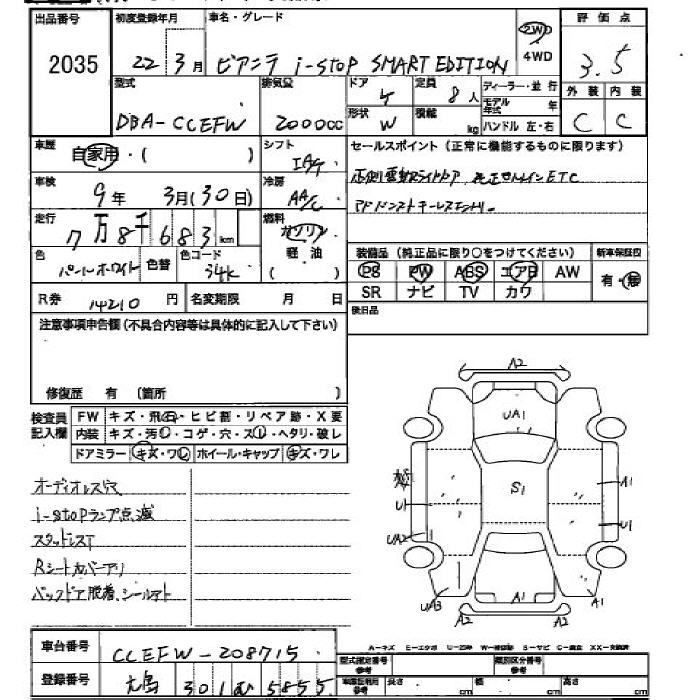 出品番号 初度登録年月 車名・グレード 評価点
2035 22年 3月 ビアンテ i-stop SMART EDITION 2WD 4WD 3.5
型式 排気量 ドア 定員 ディーラー・並行
DBA-CCEFW 2000cc 8人 モデル年式 年 外装 内装
形状 W 積載 kg ハンドル 左・右 C C
車歴 自家用・( ) シフト IAT セールスポイント (正常に機能するものに限ります)
車検 9年 3月(30日) 冷房 AA/C
走行 7万8千683km 燃料 ガソリン 軽油
色 パールホワイト 色替 色コード 34K
装備品 (純正品に限り○をつけてください) 新車保証書
PS PW ABS エアB AW 有・無
SR ナビ TV カワ
R券 14210円 名変期限 月 日 後日品
注意事項申告欄 (不具合内容等は具体的に記入して下さい)
修復歴 有 (箇所 )
検査員記入欄 FW キズ・飛石・ヒビ割・リペア跡・X要
内装 キズ・汚レ・コゲ・穴・スレ・ヘタリ・破レ
ドアミラー キズ・ワレ ホイール・キャップ キズ・ワレ
オーディオレス穴
i-stopランプ点滅
スタッドレスT
Rシートカバーアリ
バックドア脱着、シールアト
A2
UA1
A1
U1 S1 U1
UA2
UA3 A1
A2 A2
車台番号 CCEFW-208715
登録番号 301 む 5855
型式指定番号 参考 類別区分番号 参考
車庫証明用 参考 長さ cm 幅 cm 高さ cm